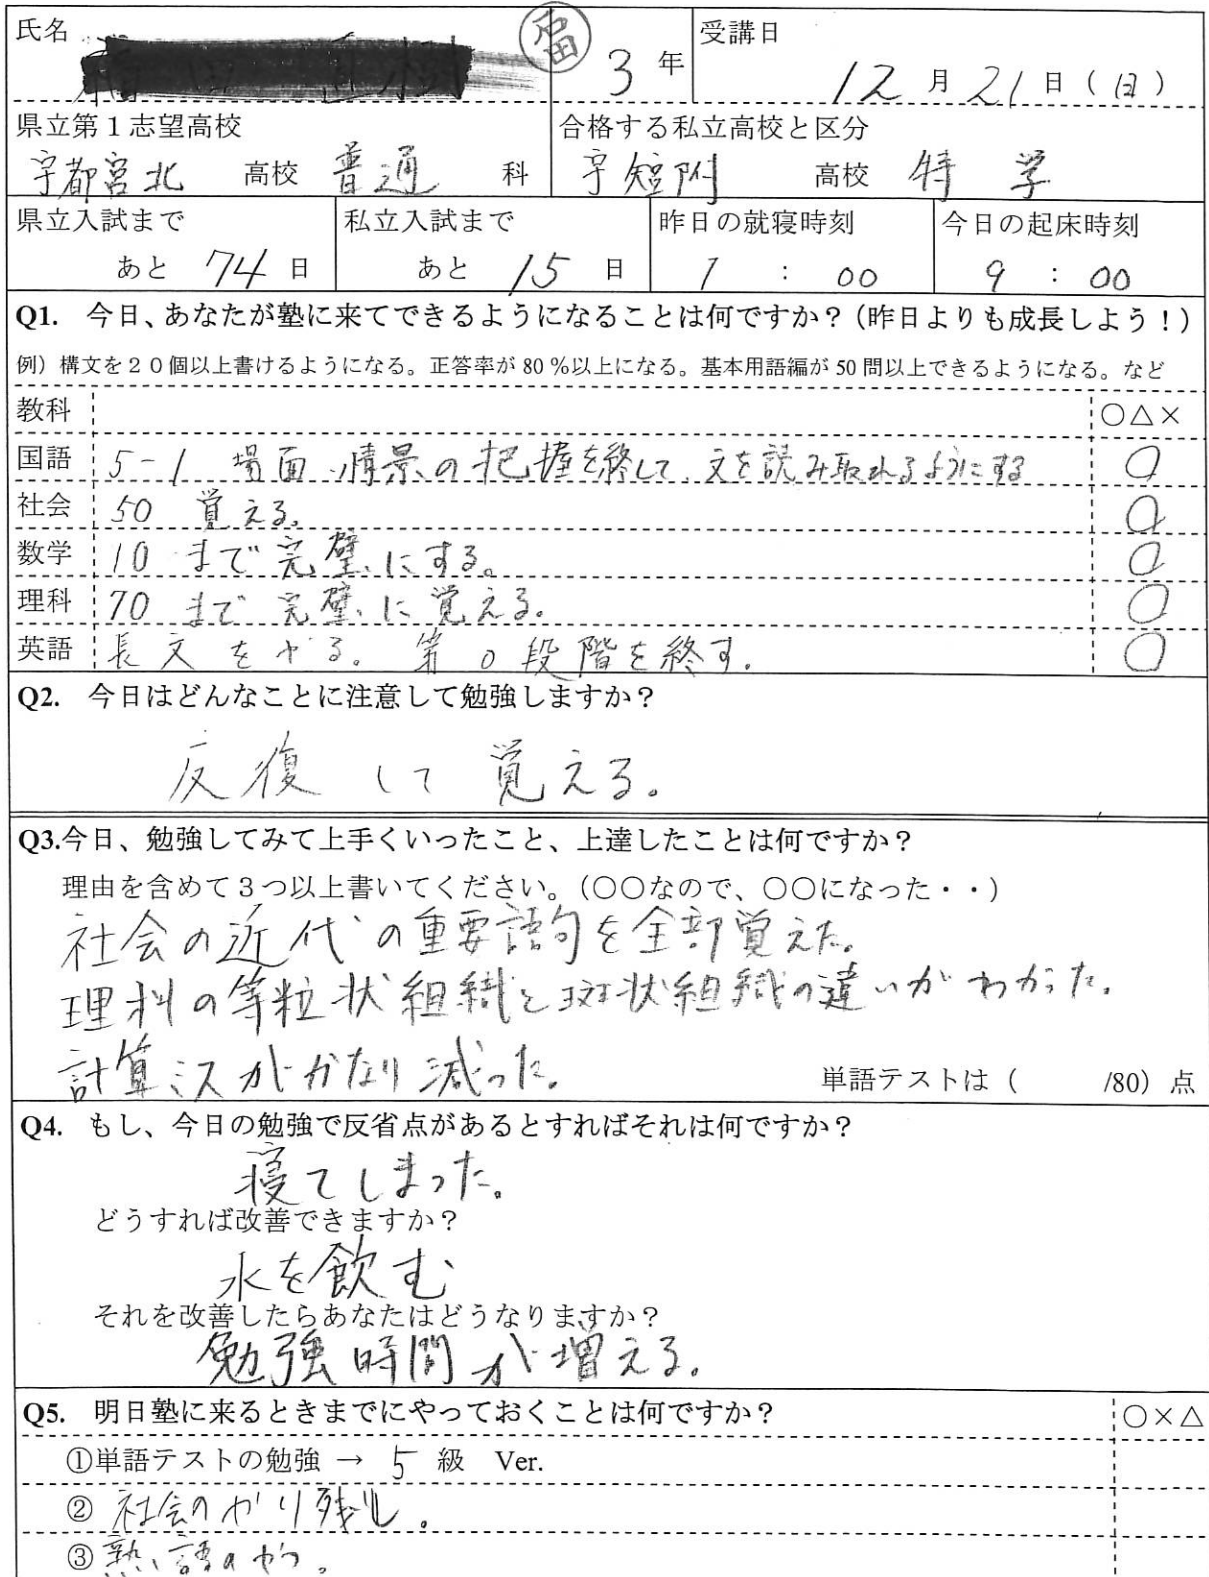 氏名 3 年 受講日
12 月 21 日 ( 日 )
県立第1志望高校 合格する私立高校と区分
宇都宮北 高校 普通 科 宇短附 高校 特 学
県立入試まで 私立入試まで 昨日の就寝時刻 今日の起床時刻
あと 74 日 あと 15 日 1 : 00 9 : 00
Q1. 今日、あなたが塾に来てできるようになることは何ですか?(昨日よりも成長しよう!)
例)構文を20個以上書けるようになる。正答率が80%以上になる。基本用語編が50問以上できるようになる。など
教科 ○△×
国語 5-1 場面・情景の把握を終して、文を読み取れるようにする ○
社会 50 覚える。 ○
数学 10 まで完璧にする。 ○
理科 70 まで完璧に覚える。 ○
英語 長文をやる。第0段階を終す。 ○
Q2. 今日はどんなことに注意して勉強しますか?
反復して覚える。
Q3.今日、勉強してみて上手くいったこと、上達したことは何ですか?
理由を含めて3つ以上書いてください。(○○なので、○○になった・・)
社会の近代の重要語句を全部覚えた。
理科の等粒状組織と斑状組織の違いがわかった。
計算ミスがかなり減った。
単語テストは( /80)点
Q4. もし、今日の勉強で反省点があるとすればそれは何ですか?
寝てしまった。
どうすれば改善できますか?
水を飲む
それを改善したらあなたはどうなりますか?
勉強時間が増える。
Q5. 明日塾に来るときまでにやっておくことは何ですか? ○×△
①単語テストの勉強 → 5 級 Ver.
② 社会のやり残し。
③ 熟語のやつ。